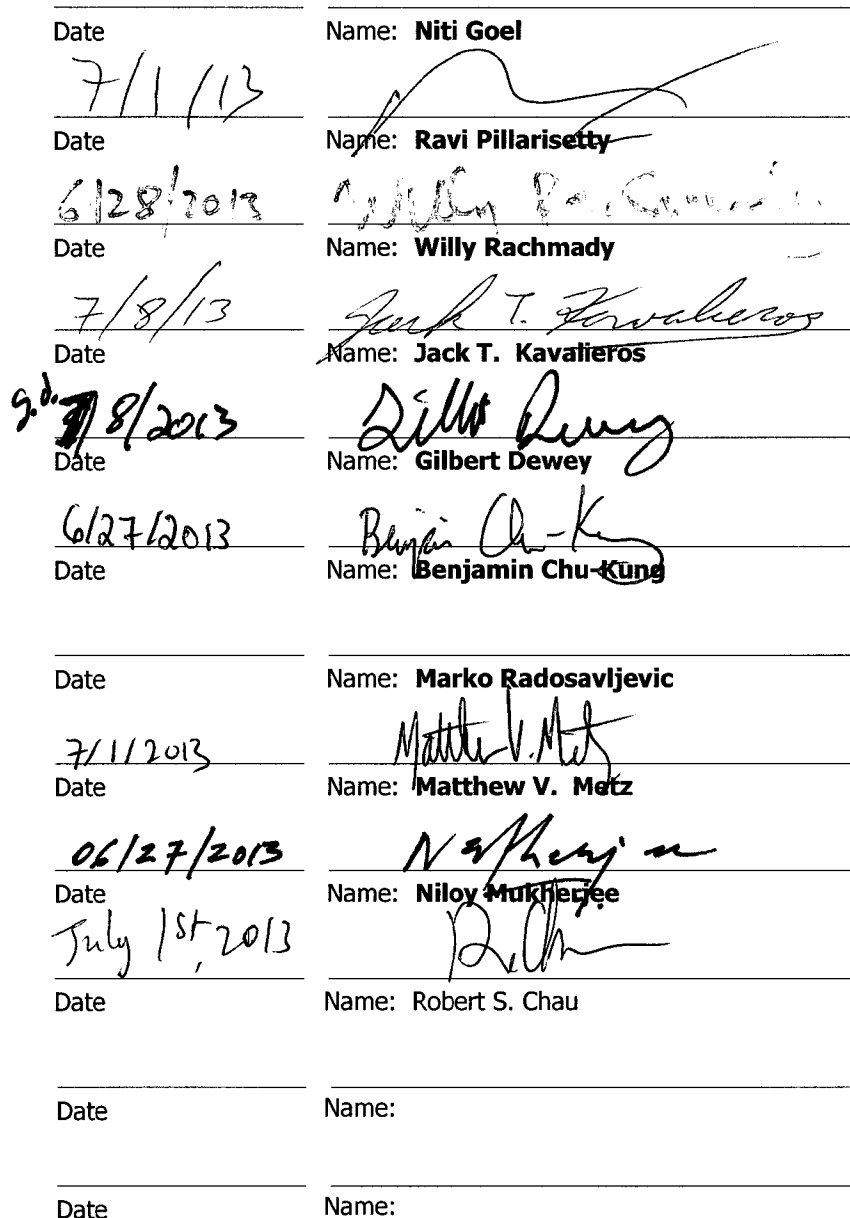 Date Name: Niti Goel
7/1/13
Date Name: Ravi Pillarisetty
6/28/2013 Willy
Date Name: Willy Rachmady
7/8/13 Jack T. Kavalieros
Date Name: Jack T. Kavalieros
g.d. 7/8/2013 Dewey
Date Name: Gilbert Dewey
6/27/2013 Benjamin Chu-Kung
Date Name: Benjamin Chu-Kung
Date Name: Marko Radosavljevic
7/1/2013 Matthew V. Metz
Date Name: Matthew V. Metz
06/27/2013
Date Name: Niloy Mukherjee
July 1st, 2013
Date Name: Robert S. Chau
Date Name:
Date Name: